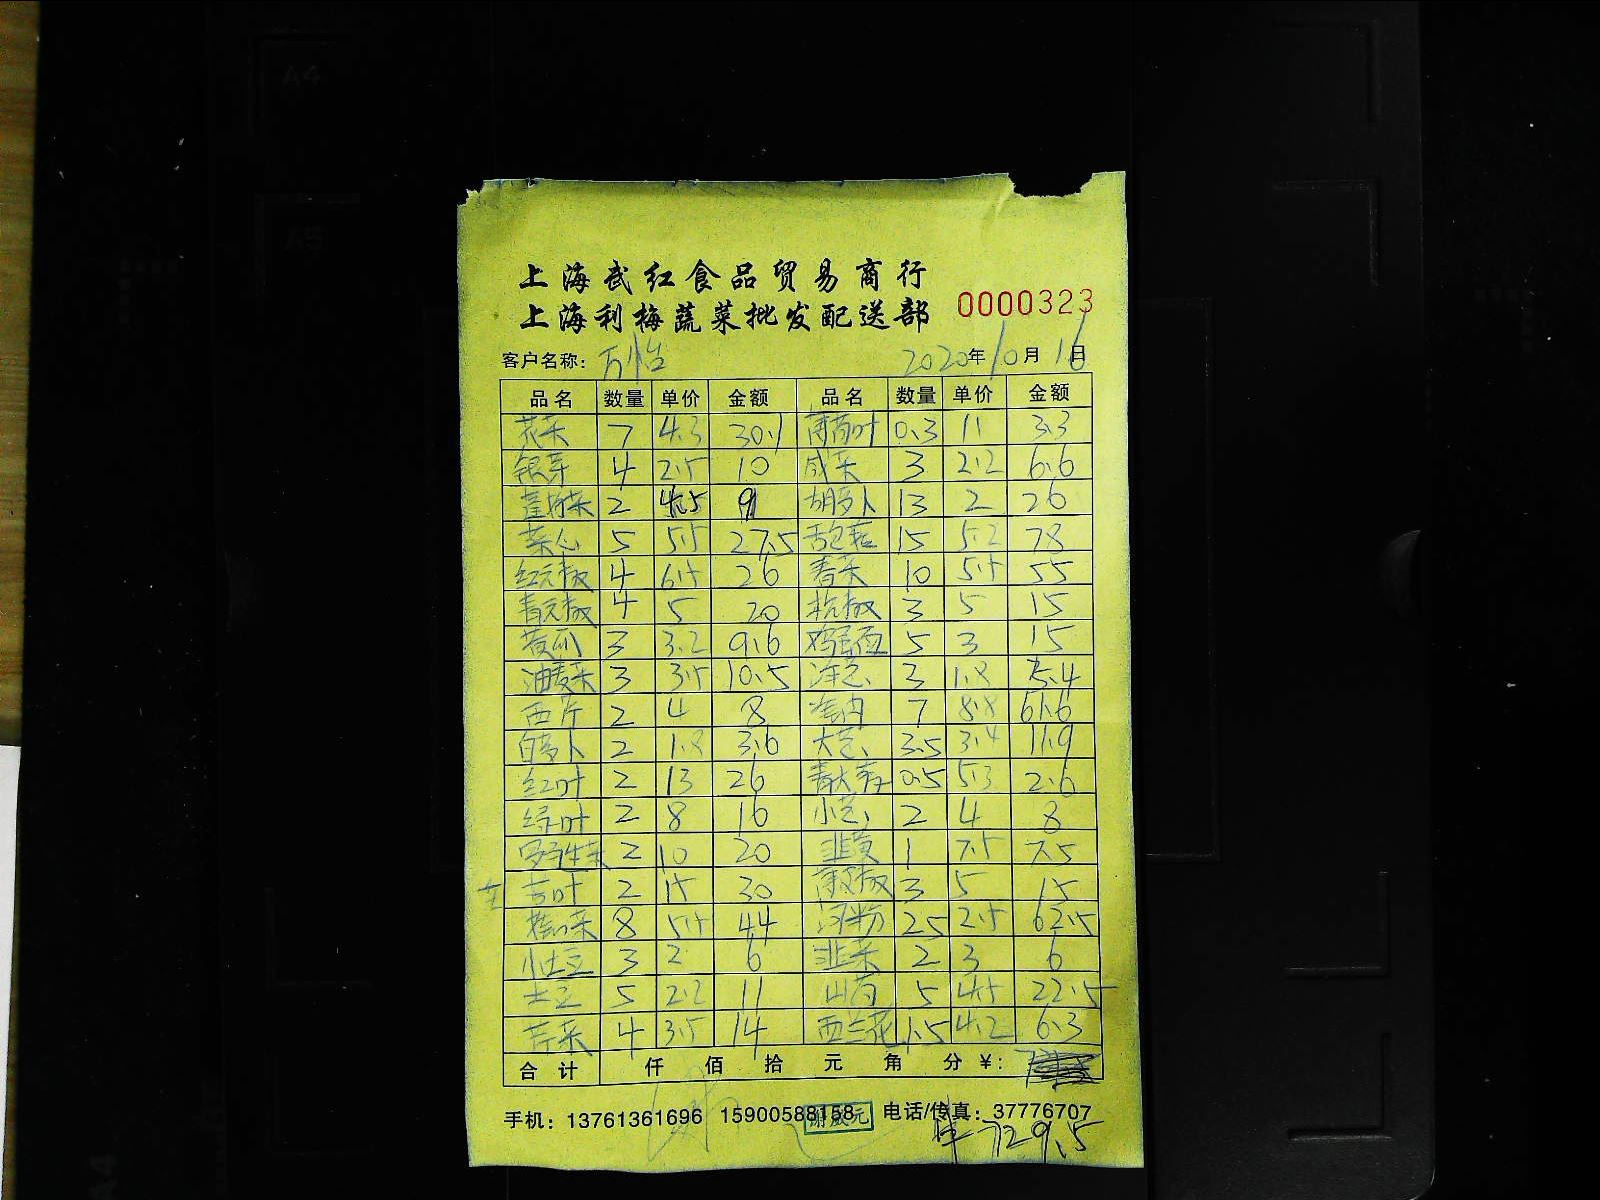 A4
A5
上海武红食品贸易商行
上海利梅蔬菜批发配送部 0000323
客户名称: 万怡 2020年10月16日
品名 数量 单价 金额 品名 数量 单价 金额
花菜 7 4.3 30.1 薄荷叶 0.3 11 3.3
银芽 4 2.5 10 咸菜 3 2.2 6.6
2 4.5 9 胡萝卜 13 2 26
菜心 5 5.5 27.5 15 5.2 78
红元椒 4 6.5 26 春菜 10 5.5 55
青元椒 4 5 20 杭椒 3 5 15
黄瓜 3 3.2 9.6 鸡蛋面 5 3 15
油麦菜 3 3.5 10.5 洋芝 3 1.8 5.4
西芹 2 4 8 7 8.8 61.6
白萝卜 2 1.8 3.6 大芝 3.5 3.4 11.9
红叶 2 13 26 0.5 5.3 2.6
绿叶 2 8 16 小芝 2 4 8
罗马生菜 2 10 20 韭黄 1 7.5 7.5
2 15 30 3 5 15
8 5.5 44 河粉 25 2.5 62.5
小土豆 3 2 6 韭菜 2 3 6
土豆 5 2.2 11 山药 5 4.5 22.5
芹菜 4 3.5 14 西兰花 1.5 4.2 6.3
合计 仟 佰 拾 元 角 分 ¥:
手机: 13761361696 15900588158 电话/传真: 37776707
729.5
A4